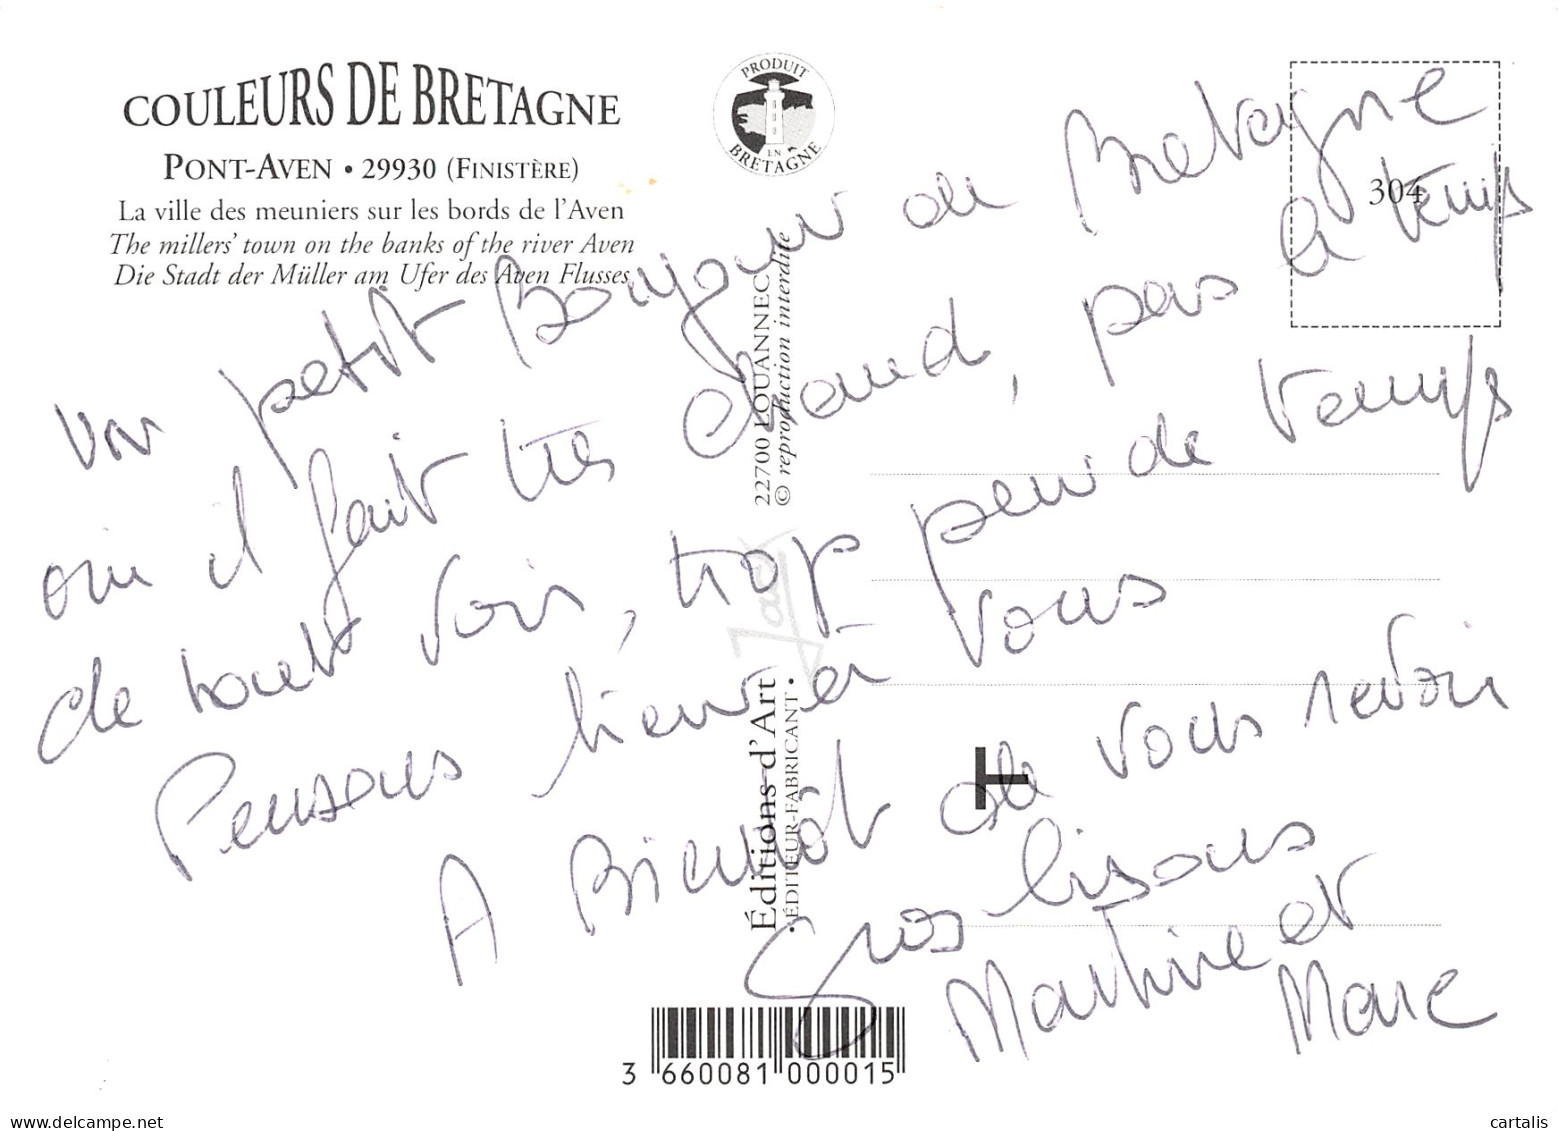 COULEURS DE BRETAGNE
PONT-AVEN • 29930 (FINISTÈRE)
La ville des meuniers sur les bords de l'Aven
The millers' town on the banks of the river Aven
Die Stadt der Müller am Ufer des Aven Flusses
PRODUIT
EN
BRETAGNE
304
Un petit Bonjour de Bretagne
où il fait très chaud, pas le temps
de tout voir, trop peu de temps
Pensons bien à vous
A Bientôt de vous revoir
Gros bisous
Martine et
Marc
Éditions d'Art Jack
• ÉDITEUR-FABRICANT •
22700 LOUANNEC
© reproduction interdite
3 660081 000015
delcampe.net
cartalis